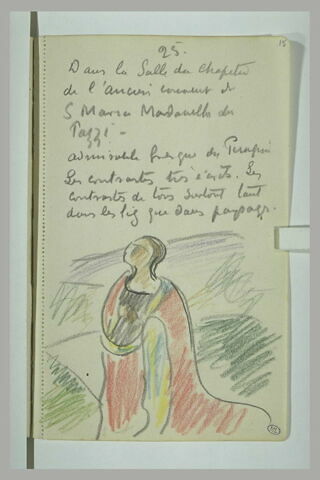 25.
15
Dans la Salle du Chapitre
de l'ancien couvent de
S Maria Madanella de
Pazzi -
admirable fresque du Perugin
Les contrastes très écrits. Les
contrastes de tons surtout tant
dans les fig que dans paysage.